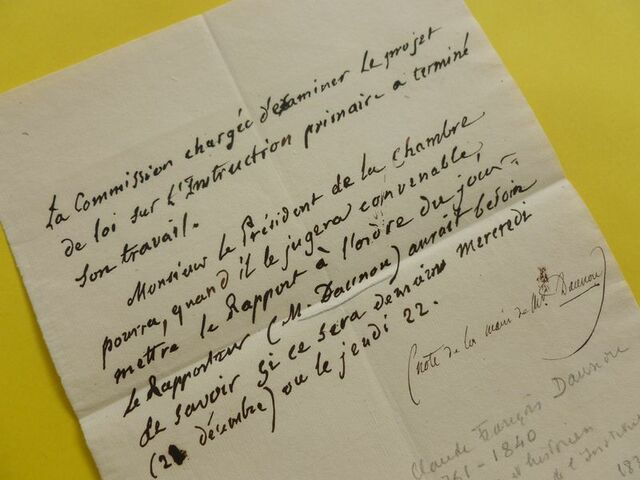 La Commission chargée d'examiner le projet
de loi sur l'Instruction primaire a terminé
son travail.
Monsieur le Président de la Chambre
pourra, quand il le jugera convenable,
mettre le Rapport à l'ordre du jour-
le Rapporteur (M. Daunou) aurait besoin
de savoir si ce sera demain mercredi
(21 décembre) ou le jeudi 22.
(note de la main de Mr Daunou)
Claude François Daunou
1761 - 1840
historien
de l'Institut
183